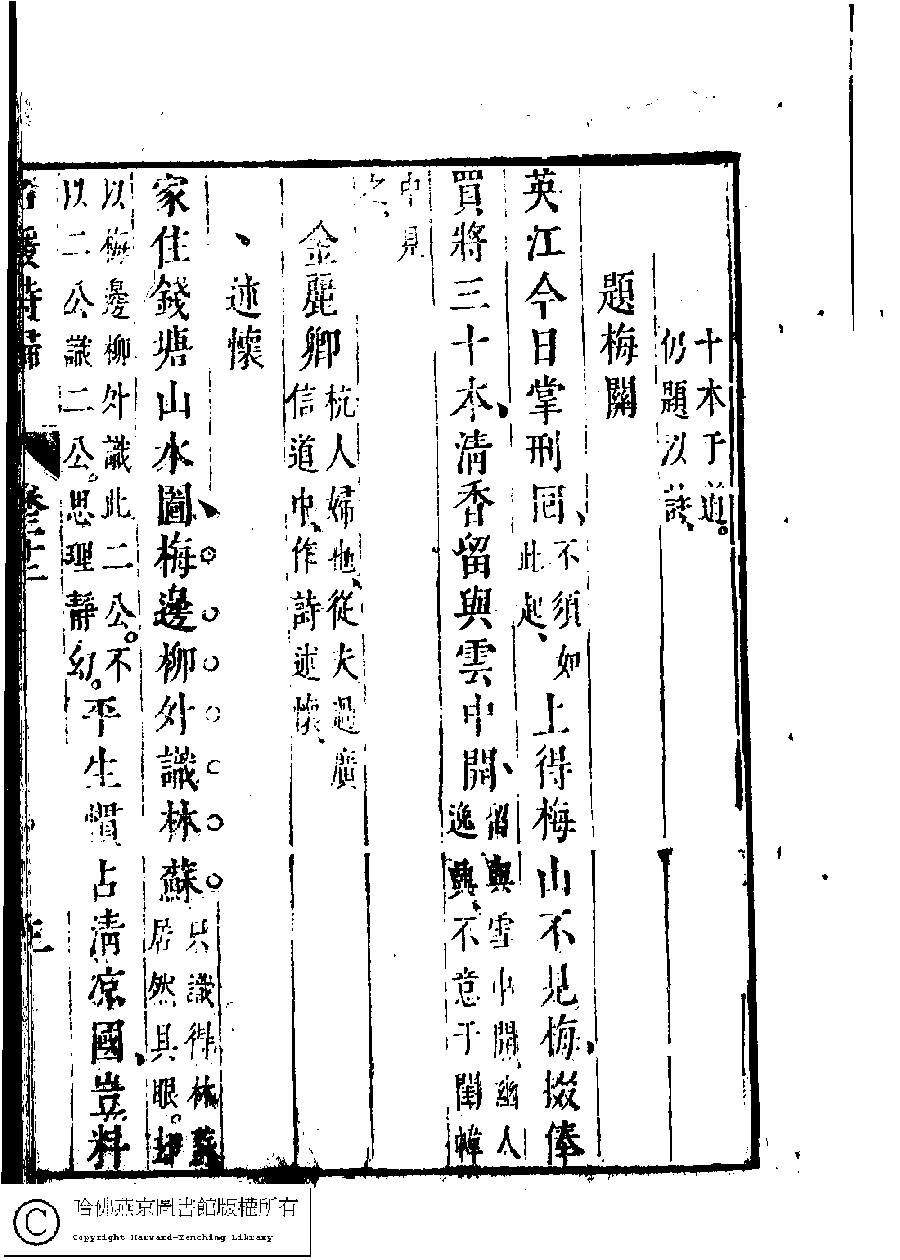 十本于道。
仍題以誌、
題梅關
英江今日掌刑囘、
不須如
此起、
上得梅山不見梅、掇俸
買將三十本、清香留與雲中開、
留與雪中開、幽人
逸興、不意于閨幃
中見
之、
金麗卿
杭人婦也、從夫過廣
信道中、作詩述懷、
、述懷
家住錢塘山水圖、梅邊柳外識林蘇
只識得林蘇
居然具眼。却
以梅邊柳外識此二公。不
以二公識二公。思理靜幻。
平生慣占清凉國、豈料
媛詩歸
哈佛燕京圖書館版權所有
Copyright Harvard-Yenching Library